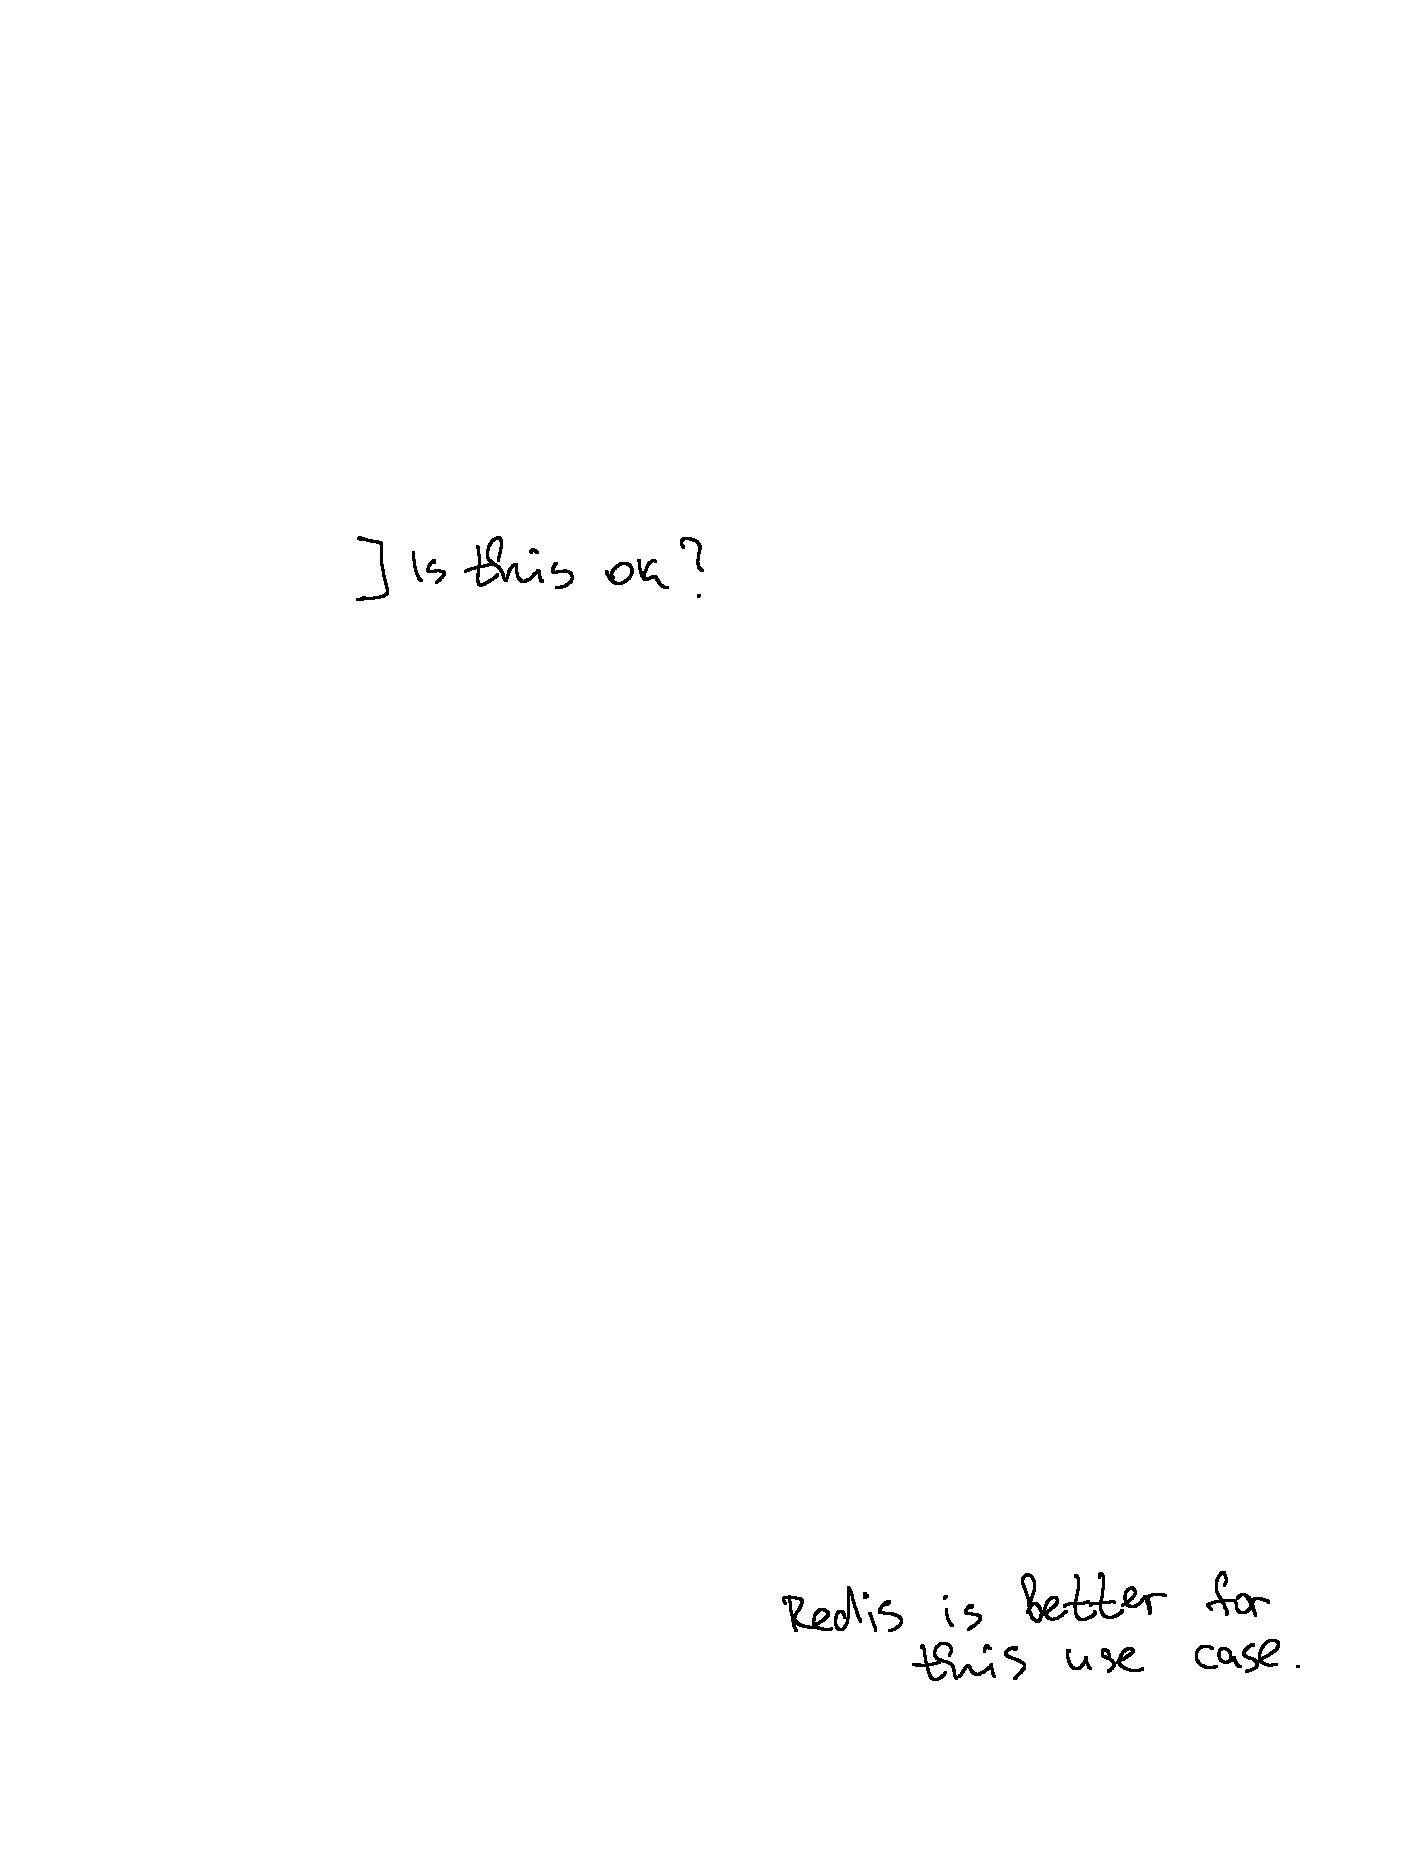 ] Is this ok?
Redis is better for
this use case.